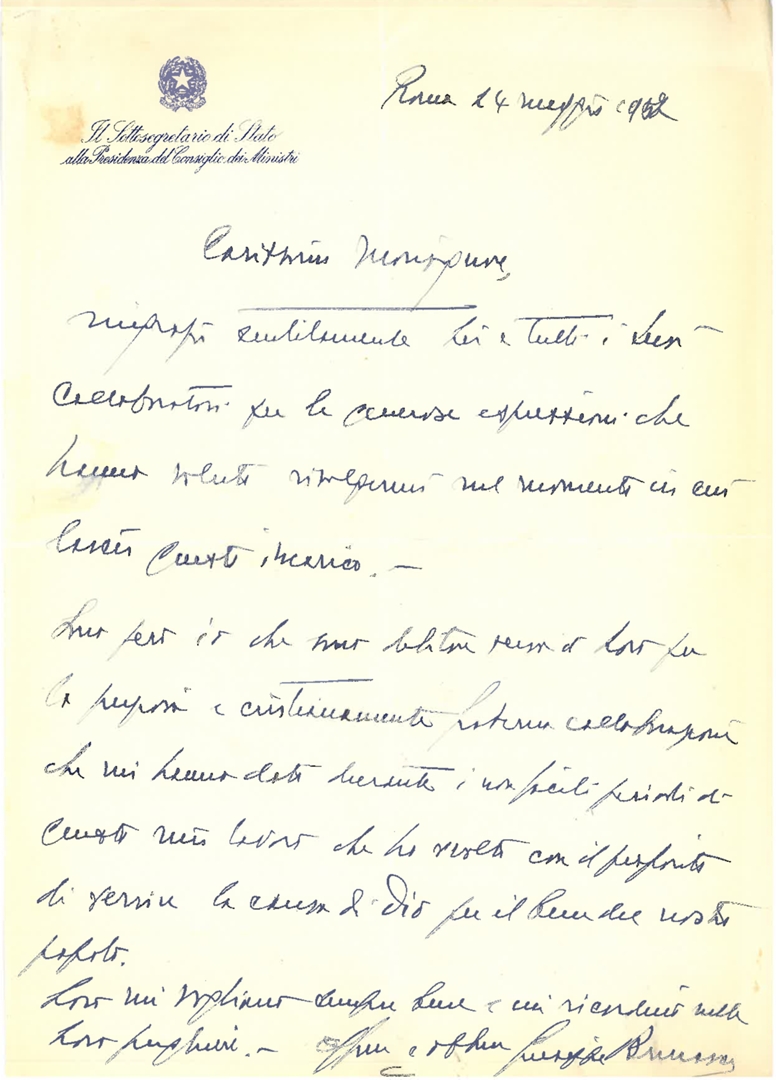 Roma 24 maggio 1952
Il Sottosegretario di Stato
alla Presidenza del Consiglio dei Ministri
Carissimo Monsignore,
ringrazio sentitamente Lei e tutti i Suoi
collaboratori per le generose espressioni che
hanno voluto rivolgermi nel momento in cui
lascio questo incarico. —
Sono però io che sono debitore verso di Loro per
la preziosa e cristianamente fraterna collaborazione
che mi hanno dato durante i non facili periodi di
questo mio lavoro che ho svolto con il proposito
di servire la causa di Dio per il bene del nostro
popolo.
Loro mi vogliano sempre bene e mi ricordino nelle
Loro preghiere. — Giuseppe Brusasca